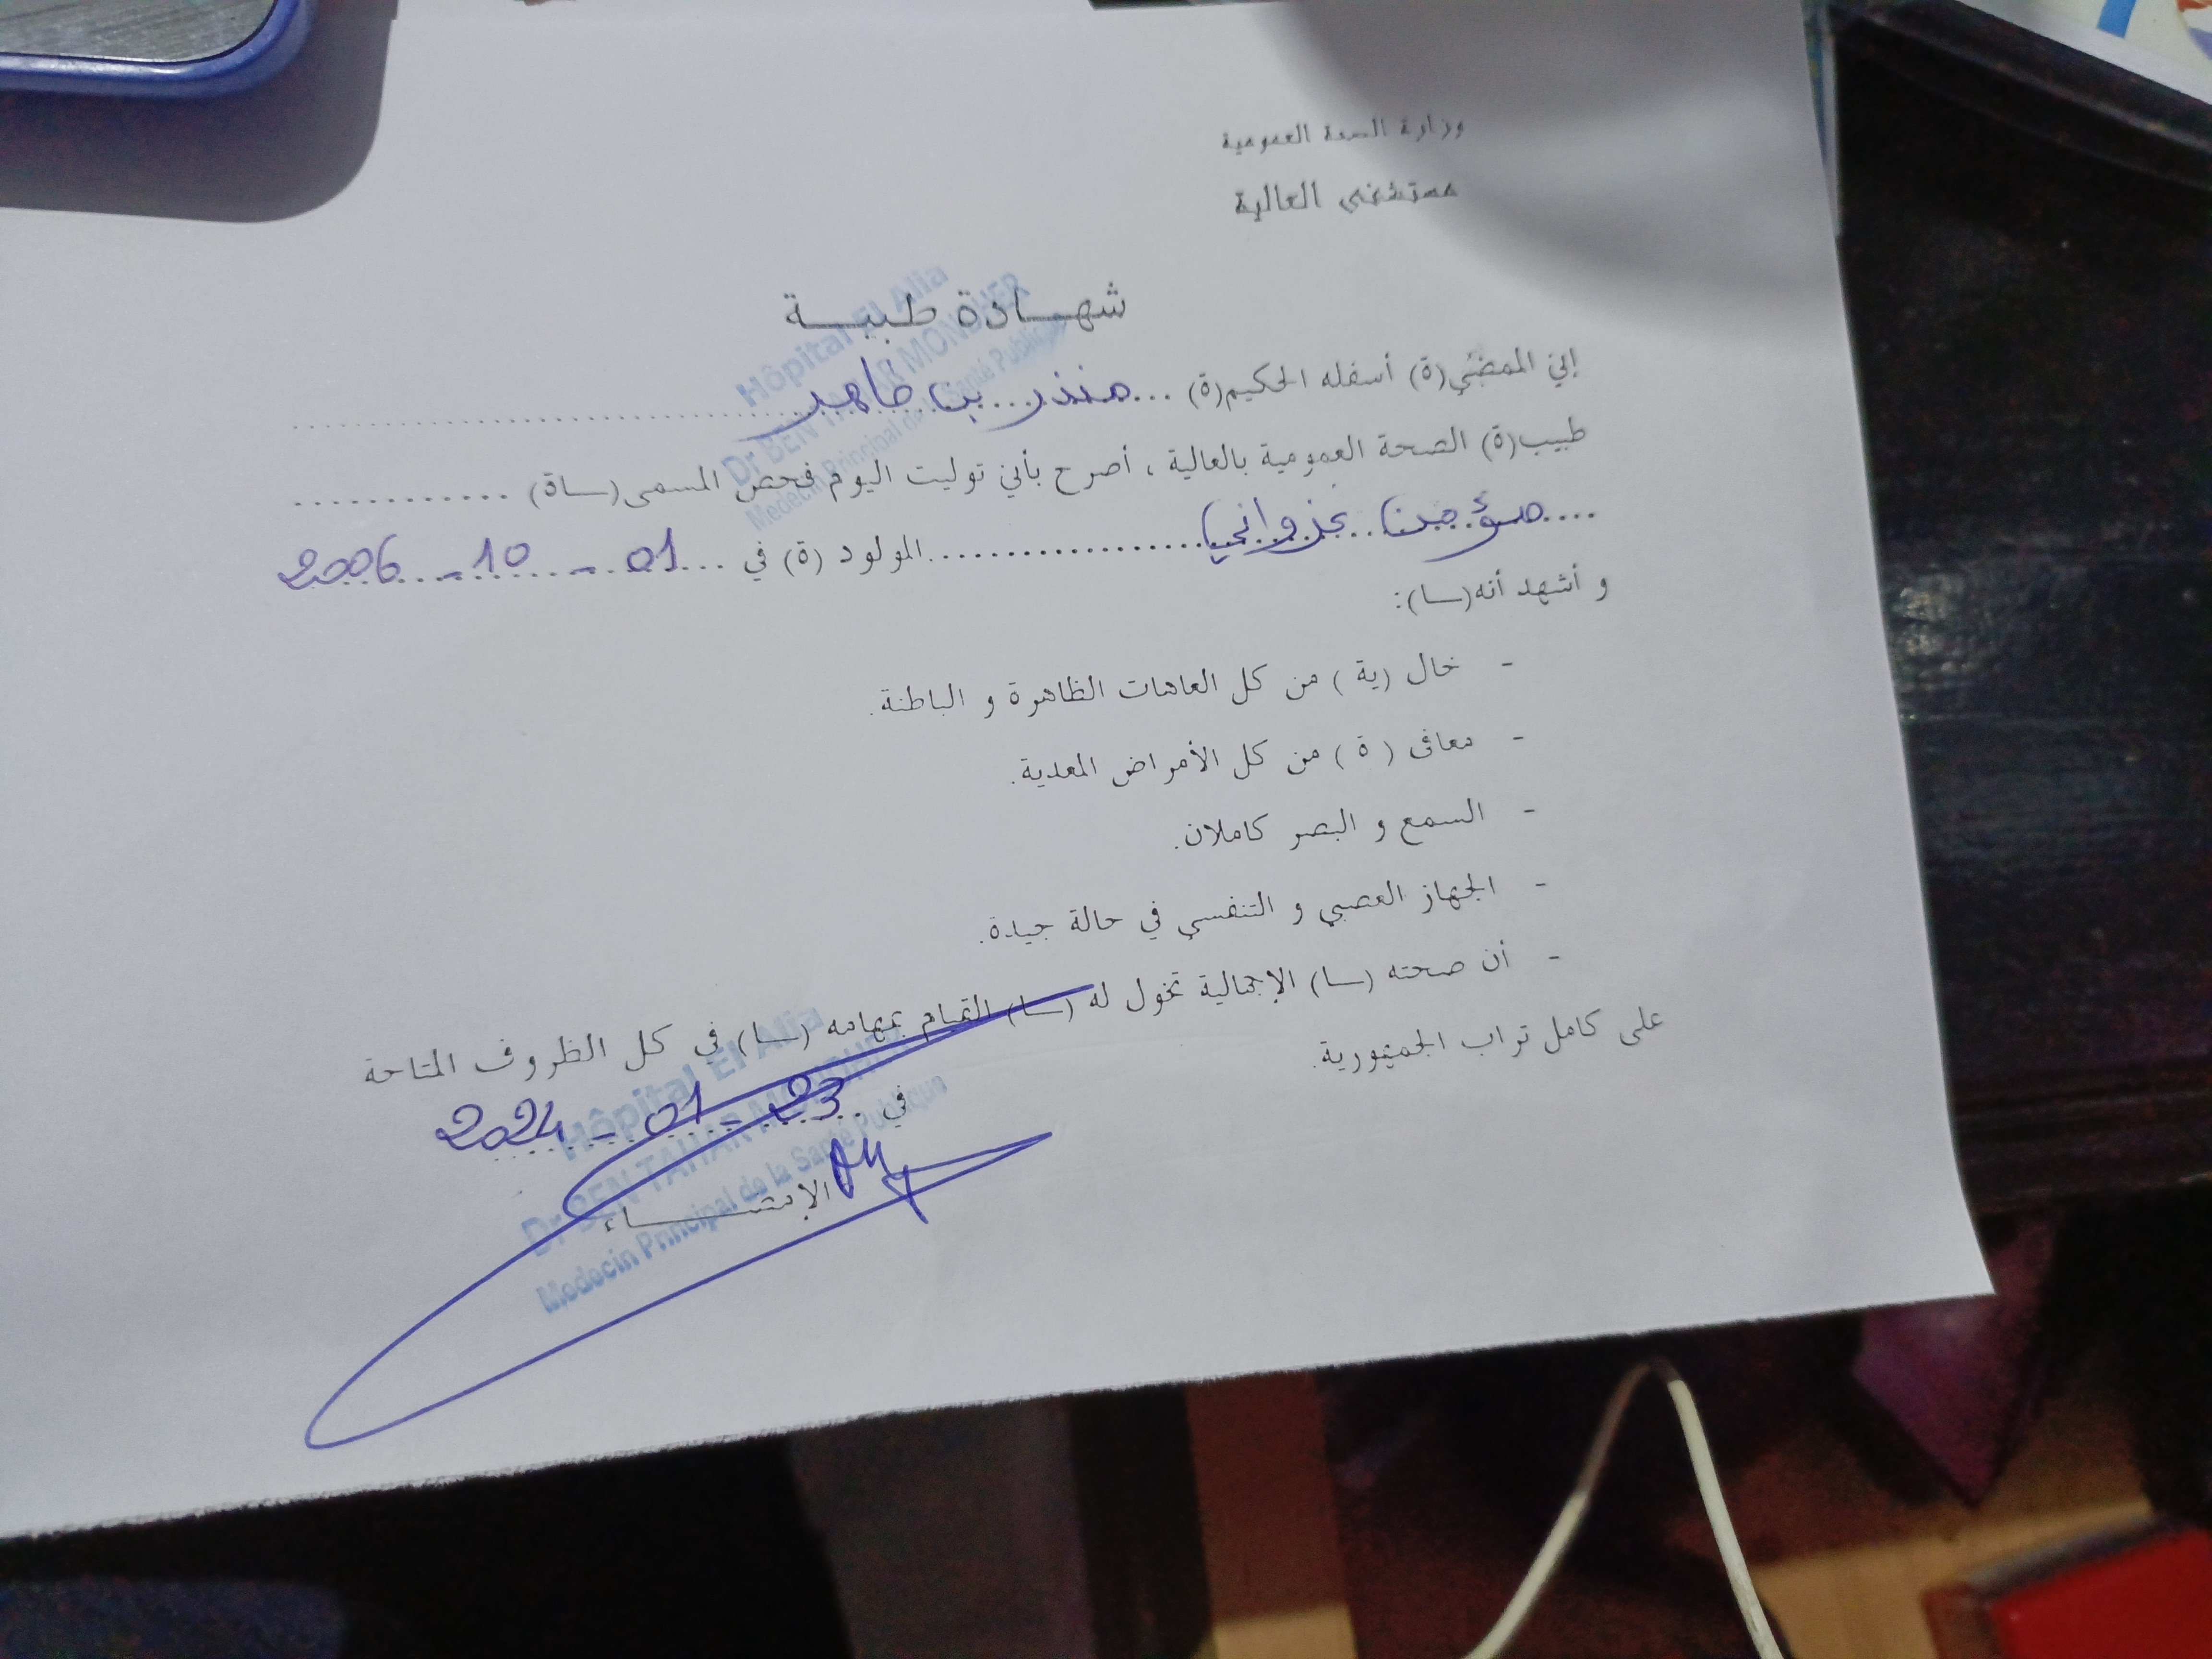 وزارة الصحة العمومية
مستشفى العالية
شهـــادة طبيـــة
Hôpital El Alia
Dr BEN TAHAR MONDHER
Medecin Principal de la Santé Publique
إني الممضي(ة) أسفله الحكيم(ة) ... منذر بن طاهر ...
طبيب(ة) الصحة العمومية بالعالية ، أصرح بأني توليت اليوم فحص المسمى(ـــاة) ............
.... مؤمن غزواني .................. المولود (ة) في ... 01 - 10 - 2006
و أشهد أنه(ـــا):
- خال (ية ) من كل العاهات الظاهرة و الباطنة.
- معافى ( ة ) من كل الأمراض المعدية.
- السمع و البصر كاملان.
- الجهاز العصبي و التنفسي في حالة جيدة.
- أن صحته (ـــا) الإجمالية تخول له (ـــا) القيام بمهامه (ـــا) في كل الظروف المتاحة
على كامل تراب الجمهورية.
في .. 23 - 01 - 2024
الإمضـــــــاء
Hôpital El Alia
Dr BEN TAHAR MONDHER
Medecin Principal de la Santé Publique